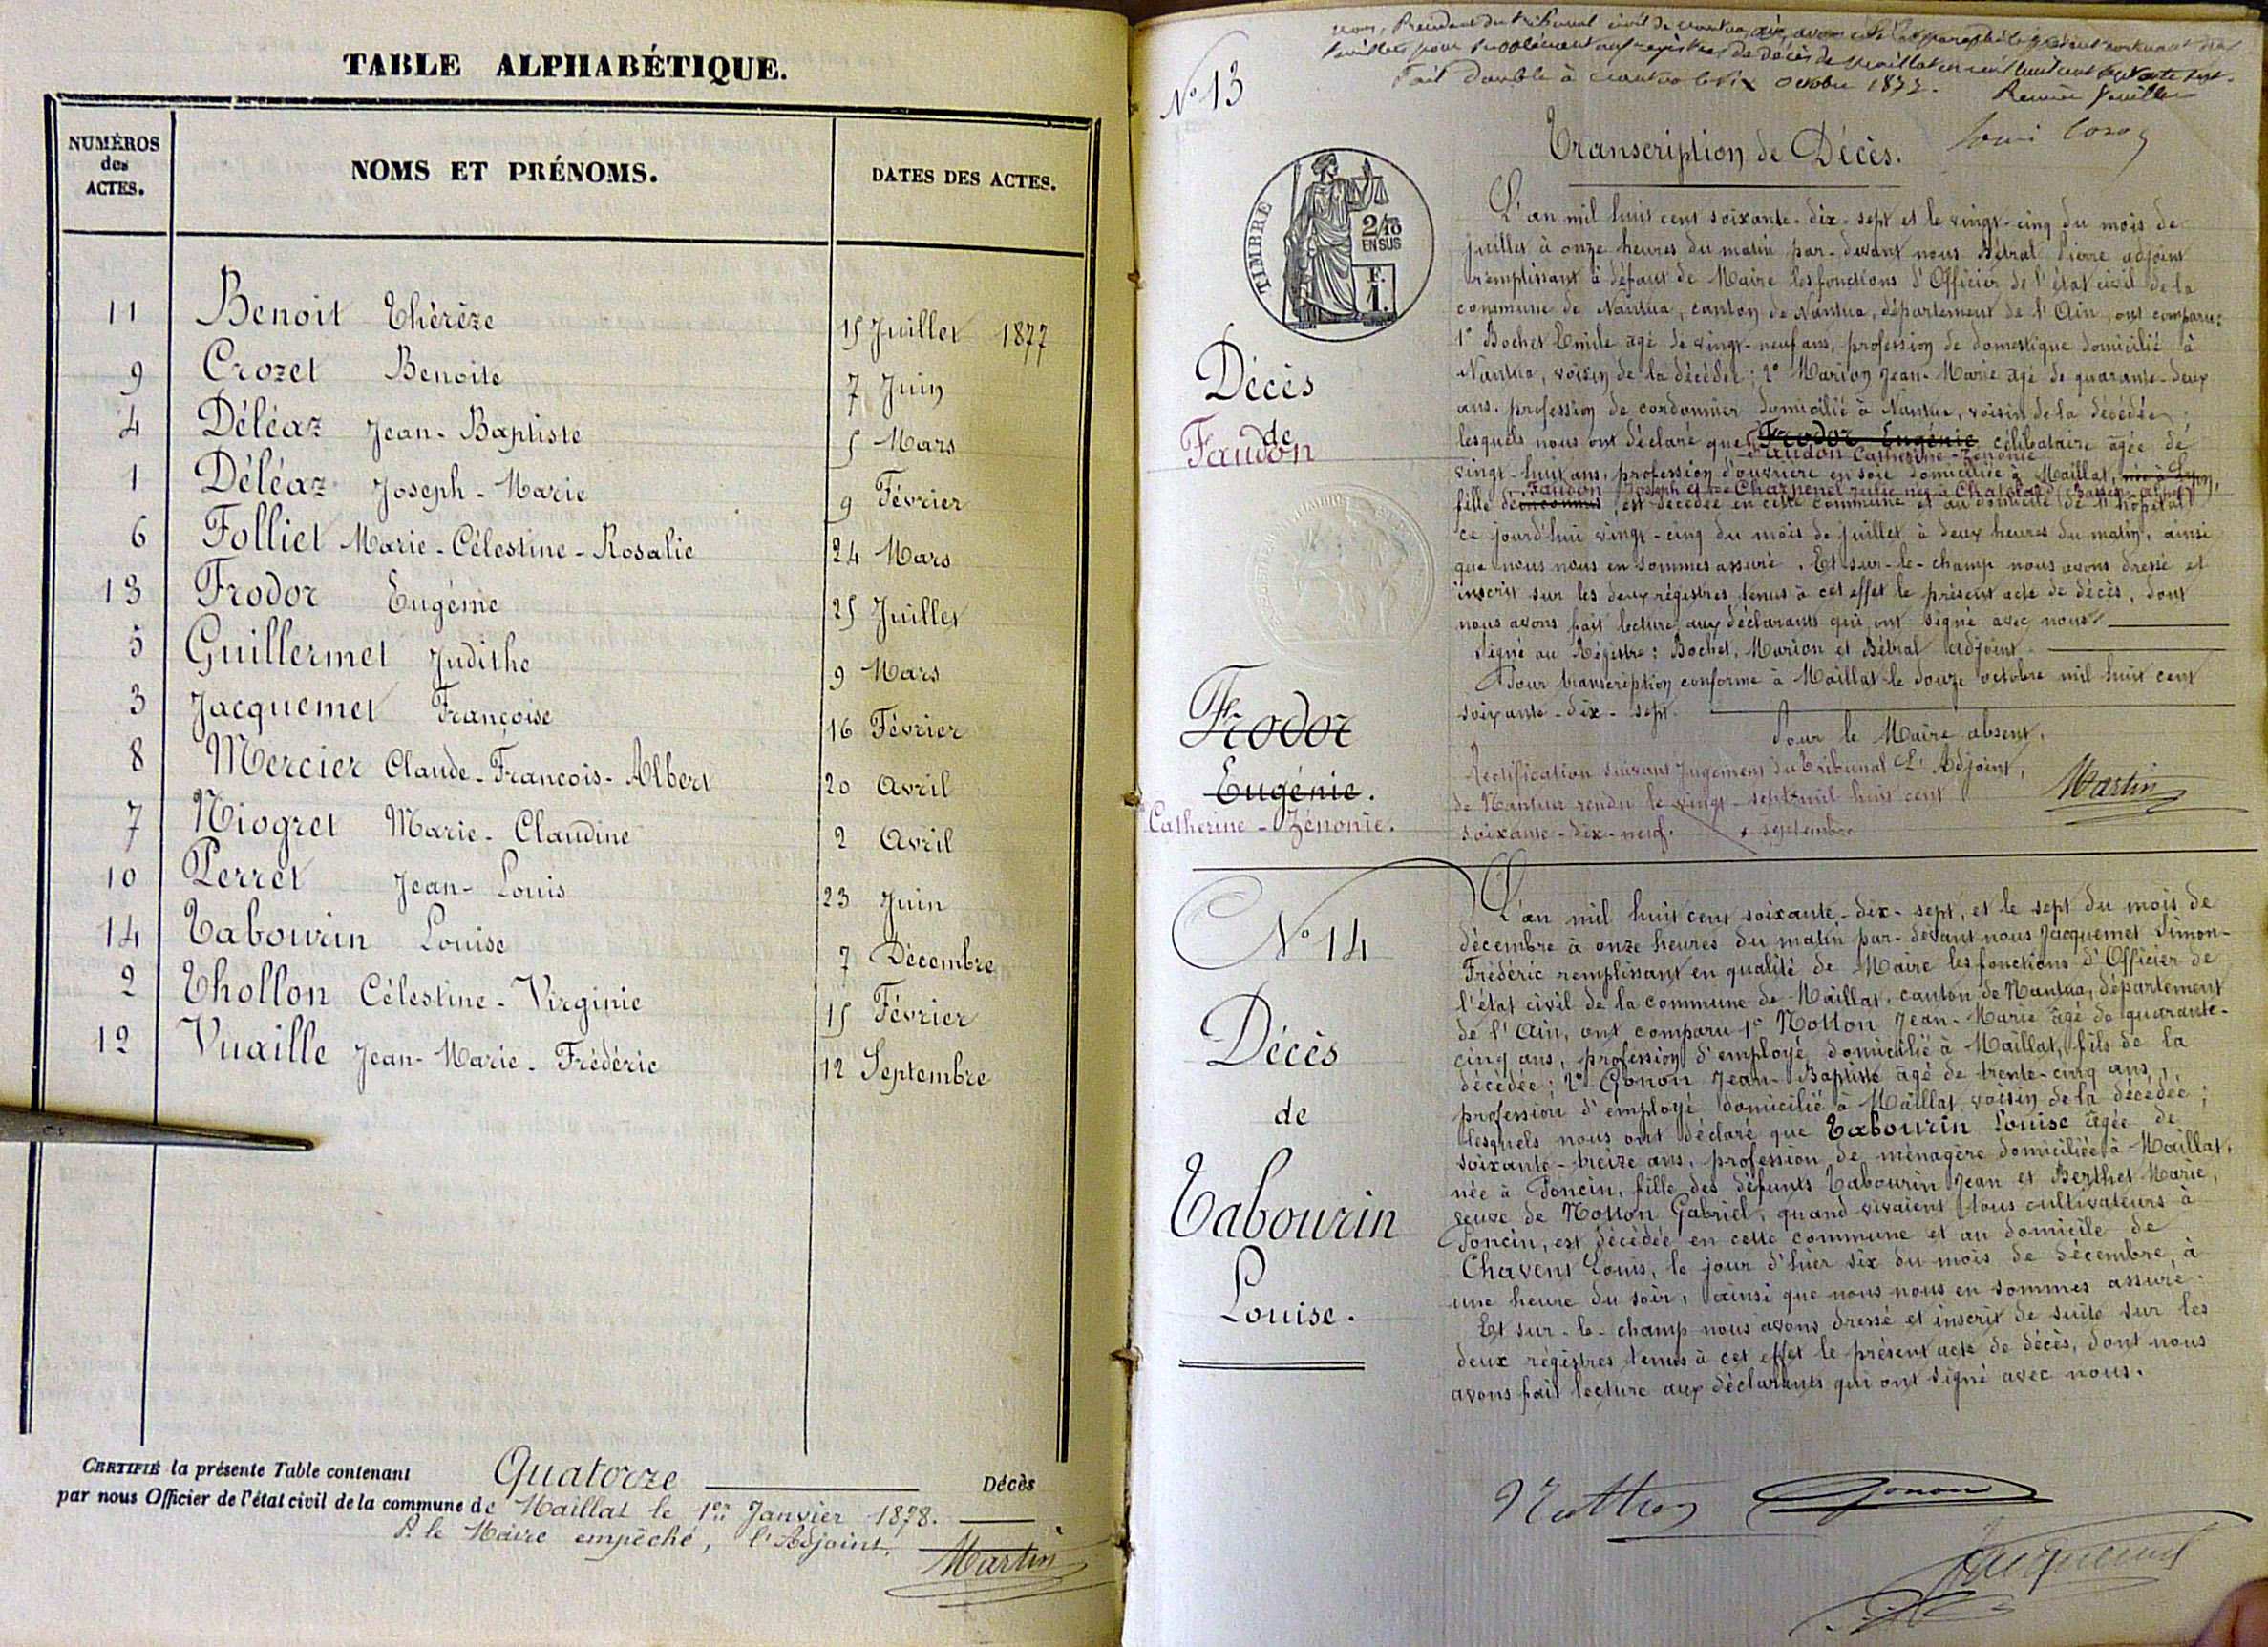 TABLE ALPHABÉTIQUE.
NUMÉROS des ACTES.
NOMS ET PRÉNOMS.
DATES DES ACTES.
11 Benoit Thérèze 15 Juillet 1877
9 Crozet Benoite 7 Juin
4 Déléaz Jean-Baptiste 5 Mars
1 Déléaz Joseph-Marie 9 Février
6 Folliet Marie-Célestine-Rosalie 24 Mars
13 Frodor Eugénie 25 Juillet
5 Guillermet Judithe 9 Mars
3 Jacquemet Françoise 16 Février
8 Mercier Claude-François-Albert 20 Avril
7 Niogret Marie-Claudine 2 Avril
10 Perret Jean-Louis 23 Juin
14 Tabourin Louise 7 Décembre
2 Thollon Célestine-Virginie 15 Février
12 Vuaille Jean-Marie-Frédéric 12 Septembre
CERTIFIÉ la présente Table contenant Quatorze Décès
par nous Officier de l'état civil de la commune de Maillat le 1er Janvier 1878.
P. le Maire empêché, l'Adjoint,
Martin
nous, Président du tribunal civil de
feuillets pour supplément aux registres de décès de Maillat
Fait double à le dix octobre 1877.
N° 13
Transcription de Décès.
TIMBRE
2/10
EN SUS
F.
1.
L'an mil huit cent soixante-dix-sept et le vingt-cinq du mois de
juillet à onze heures du matin par-devant nous Bétral Pierre adjoint
remplissant à défaut de Maire les fonctions d'Officier de l'état civil de la
commune de Nantua, canton de Nantua, département de l'Ain, ont comparu:
1° Bochet Emile âgé de vingt-neuf ans, profession de domestique domicilié à
Nantua, voisin de la décédée; 2° Marion Jean-Marie âgé de quarante-deux
ans, profession de cordonnier domicilié à Nantua, voisin de la décédée;
lesquels nous ont déclaré que Frodor Eugénie célibataire âgée de
Faudon Catherine-Zénonie
vingt-huit ans, profession d'ouvrière en soie domiciliée à Maillat, née à Lyon,
Faudon Joseph et de Charpenel Julie née à
fille de inconnus, est décédée en cette commune et au domicile de l'hôpital
ce jourd'hui vingt-cinq du mois de juillet à deux heures du matin, ainsi
que nous nous en sommes assuré. Et sur-le-champ nous avons dressé et
inscrit sur les deux régistres tenus à cet effet le présent acte de décès, dont
nous avons fait lecture aux déclarants qui ont signé avec nous.
Signé au Régistre: Bochet, Marion et Bétral adjoint.
Pour transcription conforme à Maillat le douze octobre mil huit cent
soixante-dix-sept.
Pour le Maire absent,
L'Adjoint,
Martin
Rectification suivant Jugement du Tribunal
de Nantua rendu le vingt-sept mil huit cent
soixante-dix-neuf. septembre
Décès
de
Faudon
Frodor
Eugénie.
Catherine-Zénonie.
N° 14
Décès
de
Tabourin
Louise.
L'an mil huit cent soixante-dix-sept, et le sept du mois de
décembre à onze heures du matin par-devant nous Jacquemet Simon-
Frédéric remplissant en qualité de Maire les fonctions d'Officier de
l'état civil de la commune de Maillat, canton de Nantua, département
de l'Ain, ont comparu 1° Notton Jean-Marie âgé de quarante-
cinq ans, profession d'employé domicilié à Maillat, fils de la
décédée; 2° Gonon Jean-Baptiste âgé de trente-cinq ans,
profession d'employé domicilié à Maillat, voisin de la décédée;
lesquels nous ont déclaré que Tabourin Louise âgée de
soixante-treize ans, profession de ménagère domiciliée à Maillat,
née à Poncin, fille des défunts Tabourin Jean et Berthet Marie,
veuve de Notton Gabriel, quand vivaient tous cultivateurs à
Poncin, est décédée en cette commune et au domicile de
Chavent Louis, le jour d'hier six du mois de décembre, à
une heure du soir, ainsi que nous nous en sommes assuré.
Et sur-le-champ nous avons dressé et inscrit de suite sur les
deux régistres tenus à cet effet le présent acte de décès, dont nous
avons fait lecture aux déclarants qui ont signé avec nous.
Notton Gonon
Jacquemet